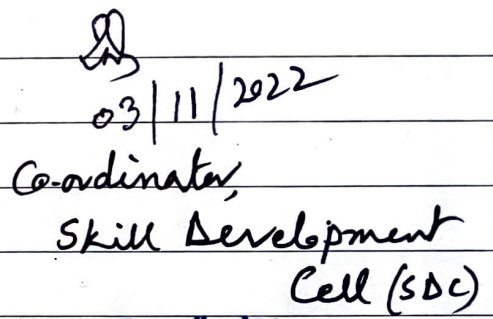 03/11/2022
Co-ordinator,
Skill Development
Cell (SDC)